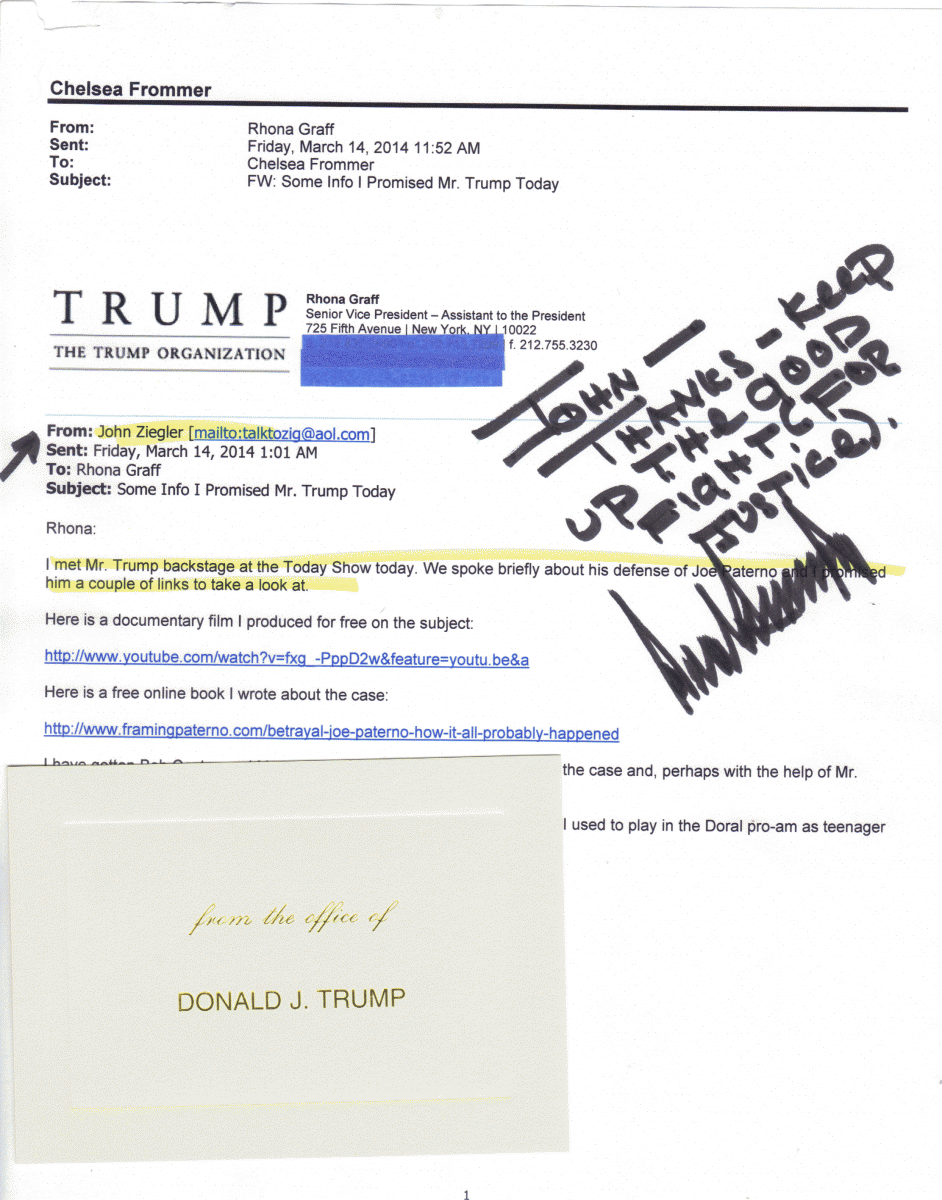 Chelsea Frommer
From: Rhona Graff
Sent: Friday, March 14, 2014 11:52 AM
To: Chelsea Frommer
Subject: FW: Some Info I Promised Mr. Trump Today
TRUMP
THE TRUMP ORGANIZATION
Rhona Graff
Senior Vice President – Assistant to the President
725 Fifth Avenue | New York, NY | 10022
| f. 212.755.3230
JOHN —
THANKS — KEEP
UP THE GOOD
FIGHT (FOR
JUSTICE).
From: John Ziegler [mailto:talktozig@aol.com]
Sent: Friday, March 14, 2014 1:01 AM
To: Rhona Graff
Subject: Some Info I Promised Mr. Trump Today
Rhona:
I met Mr. Trump backstage at the Today Show today. We spoke briefly about his defense of Joe Paterno and I promised
him a couple of links to take a look at.
Here is a documentary film I produced for free on the subject:
http://www.youtube.com/watch?v=fxg_-PppD2w&feature=youtu.be&a
Here is a free online book I wrote about the case:
http://www.framingpaterno.com/betrayal-joe-paterno-how-it-all-probably-happened
I have gotten the case and, perhaps with the help of Mr.
I used to play in the Doral pro-am as teenager
from the office of
DONALD J. TRUMP
1